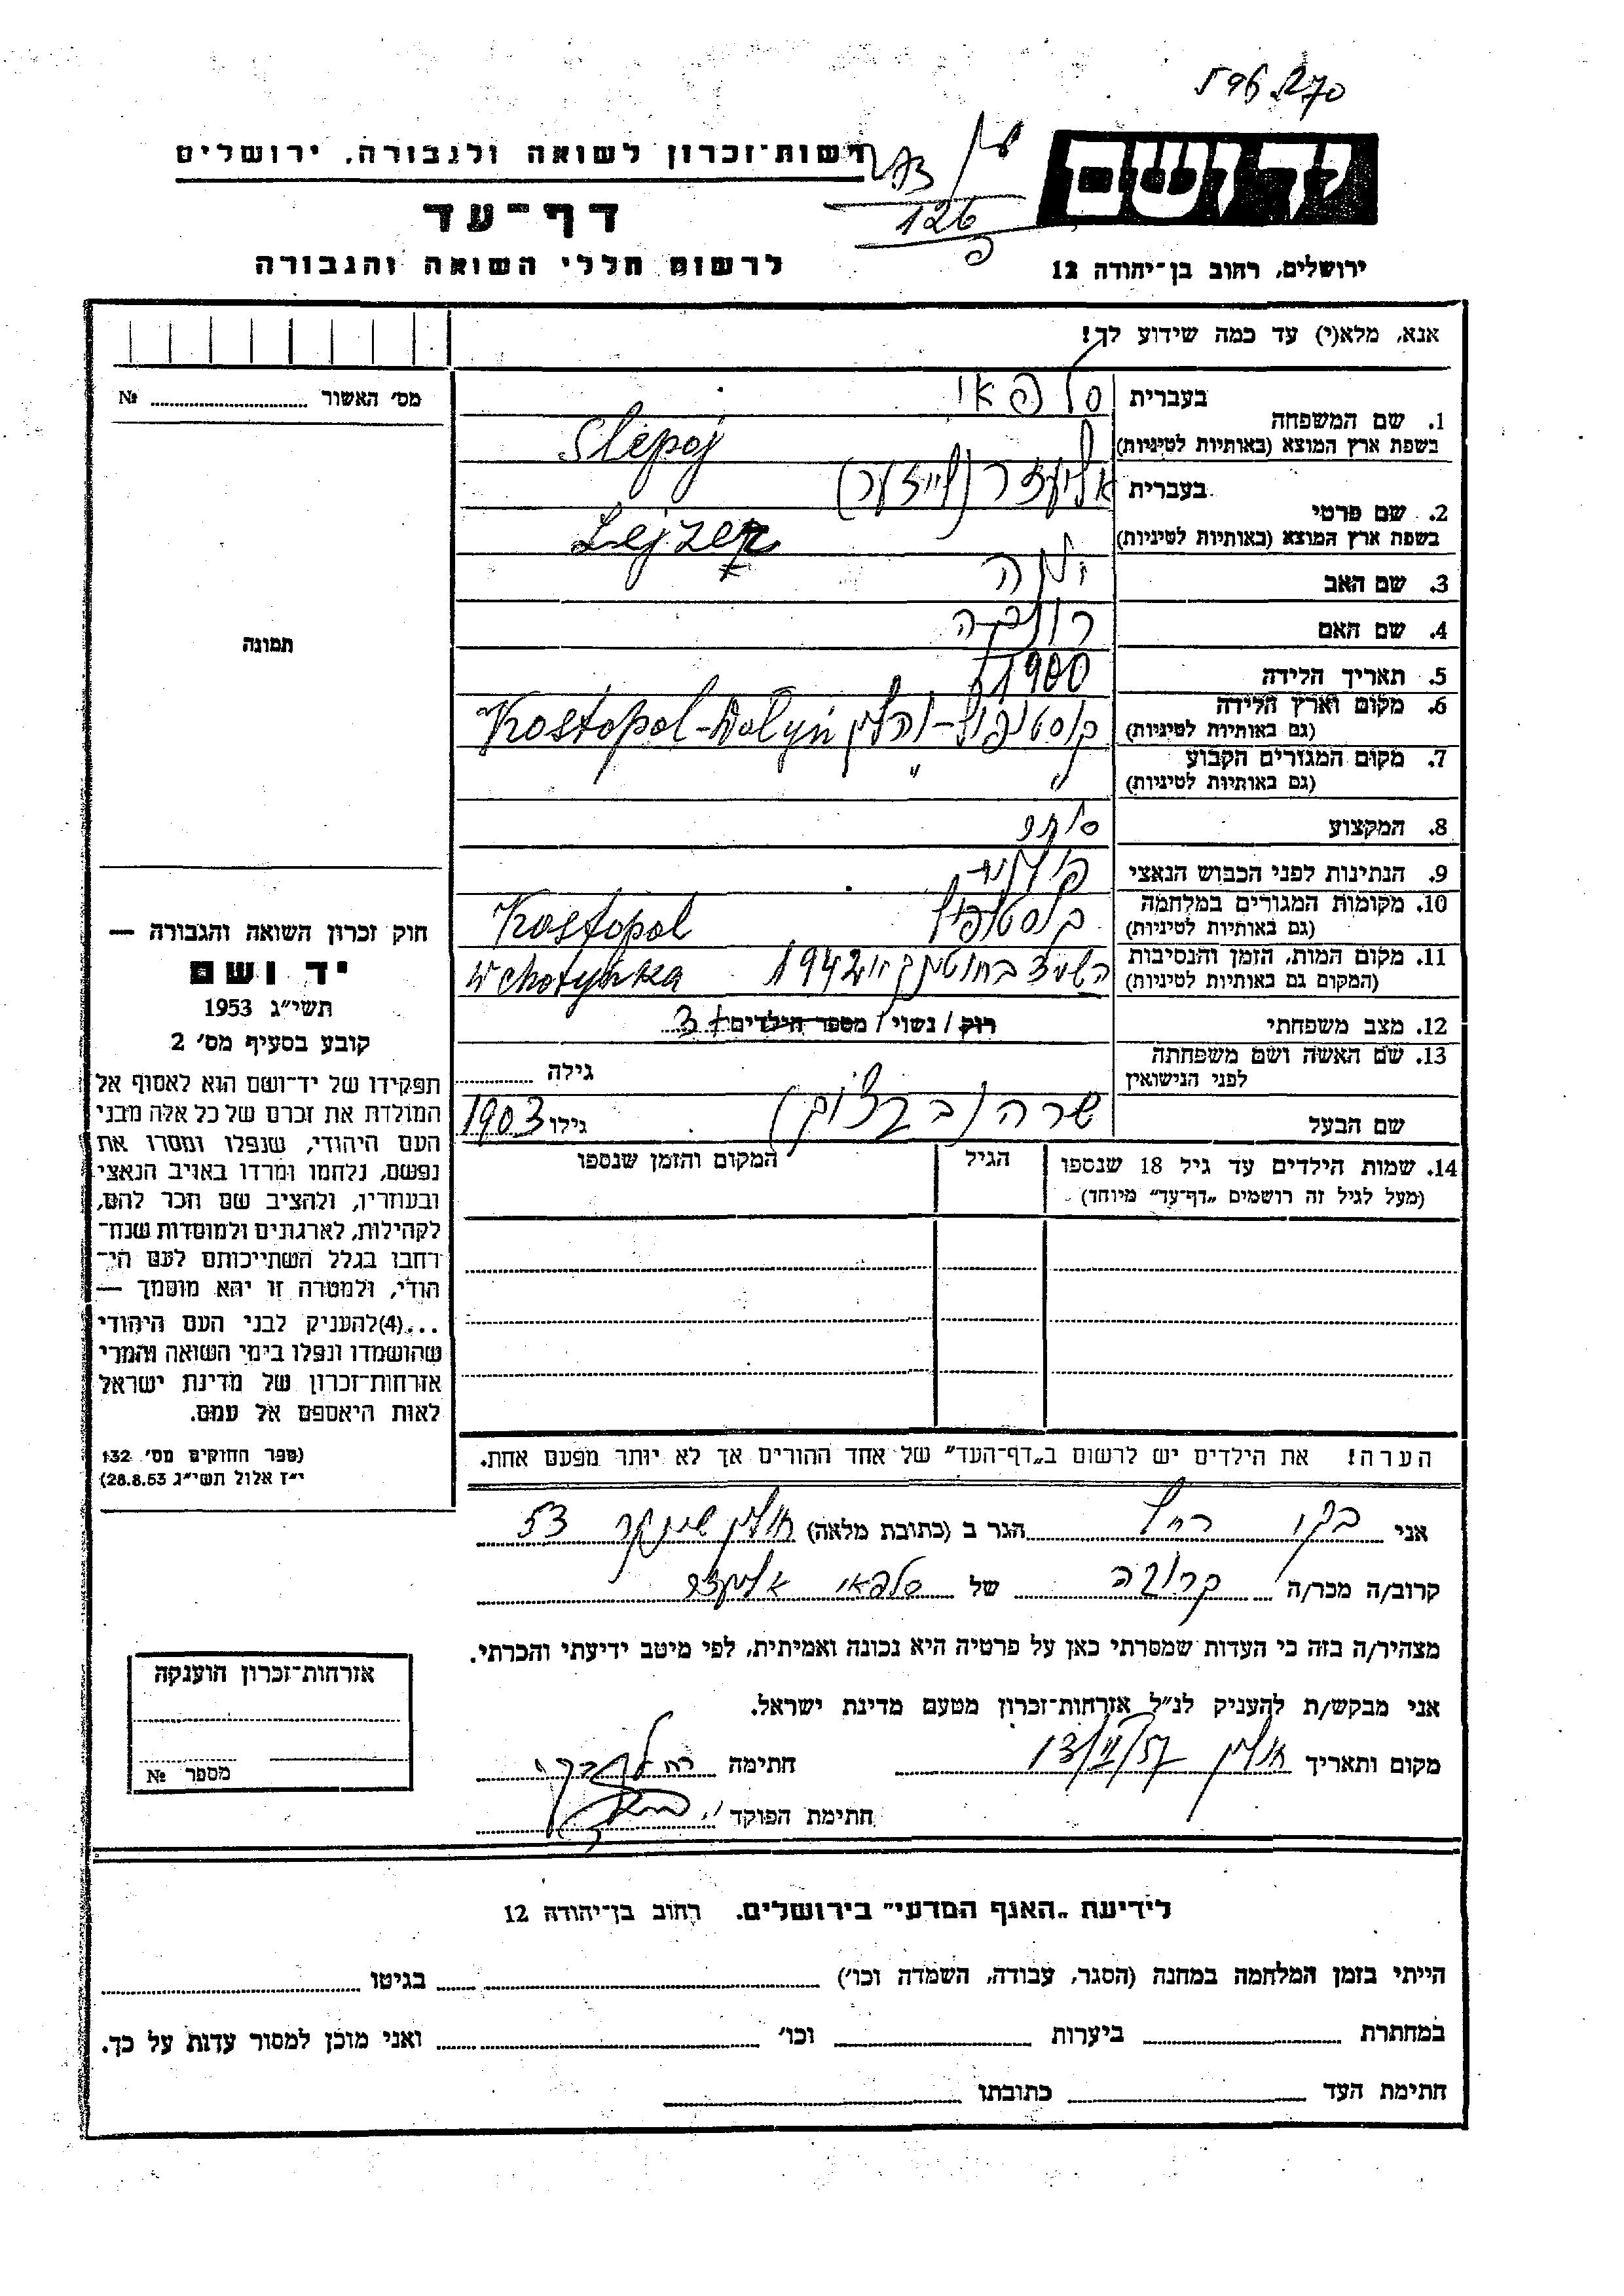 596270
רשות־זכרון לשואה ולגבורה, ירושלים
יד ושם
273
126
דף־עד
לרשום חללי השואה והגבורה
ירושלים, רחוב בן־יהודה 12
אנא, מלא(י) עד כמה שידוע לך!
מס' האשור № 
1. שם המשפחה
בעברית סלפאי
בשפת ארץ המוצא (באותיות לטיניות) Slepoj
2. שם פרטי
בעברית אליעזר (לייזער)
בשפת ארץ המוצא (באותיות לטיניות) Lejzer
3. שם האב יונה
4. שם האם רבקה
תמונה
5. תאריך הלידה 1900
6. מקום וארץ הלידה
(גם באותיות לטיניות) קוסטופול-ווהלין Kostopol-Wolyń
7. מקום המגורים הקבוע
(גם באותיות לטיניות) " "
8. המקצוע סוחר
9. הנתינות לפני הכבוש הנאצי פולנית
10. מקומות המגורים במלחמה
(גם באותיות לטיניות) קוסטופול Kostopol
11. מקום המות, הזמן והנסיבות
(המקום גם באותיות לטיניות) 1942 W Chotynka
12. מצב משפחתי רוק / נשוי / מספר הילדים + 3
13. שם האשה ושם משפחתה
לפני הנישואין גילה
שם הבעל שרה גילו 1903
14. שמות הילדים עד גיל 18 שנספו
(מעל לגיל זה רושמים „דף־עד" מיוחד)
הגיל
המקום והזמן שנספו
הערה! את הילדים יש לרשום ב„דף־העד" של אחד ההורים אך לא יותר מפעם אחת.
חוק זכרון השואה והגבורה —
יד ושם
תשי"ג 1953
קובע בסעיף מס' 2
תפקידו של יד־ושם הוא לאסוף אל
המולדת את זכרם של כל אלה מבני
העם היהודי, שנפלו ומסרו את
נפשם, נלחמו ומרדו באויב הנאצי
ובעוזריו, ולהציב שם וזכר להם,
לקהילות, לארגונים ולמוסדות שנח־
רבו בגלל השתייכותם לעם הי־
הודי, ולמטרה זו יהא מוסמך —
...(4) להעניק לבני העם היהודי
שהושמדו ונפלו בימי השואה והמרי
אזרחות־זכרון של מדינת ישראל
לאות היאספם אל עמם.
(ספר החוקים מס' 132
י"ז אלול תשי"ג 28.8.53)
אני בקר רחל הגר ב (כתובת מלאה) חולון שינקר 53
קרוב/ה מכר/ה קרובה של סלפאי אליעזר
מצהיר/ה בזה כי העדות שמסרתי כאן על פרטיה היא נכונה ואמיתית, לפי מיטב ידיעתי והכרתי.
אני מבקש/ת להעניק לנ"ל אזרחות־זכרון מטעם מדינת ישראל.
מקום ותאריך חולון חתימה
חתימת הפוקד
אזרחות־זכרון הוענקה
מספר №
לידיעת „האגף המדעי" בירושלים. רחוב בן־יהודה 12
הייתי בזמן המלחמה במחנה (הסגר, עבודה, השמדה וכו') בגיטו
במחתרת ביערות וכו' ואני מוכן למסור עדות על כך.
חתימת העד כתובתו